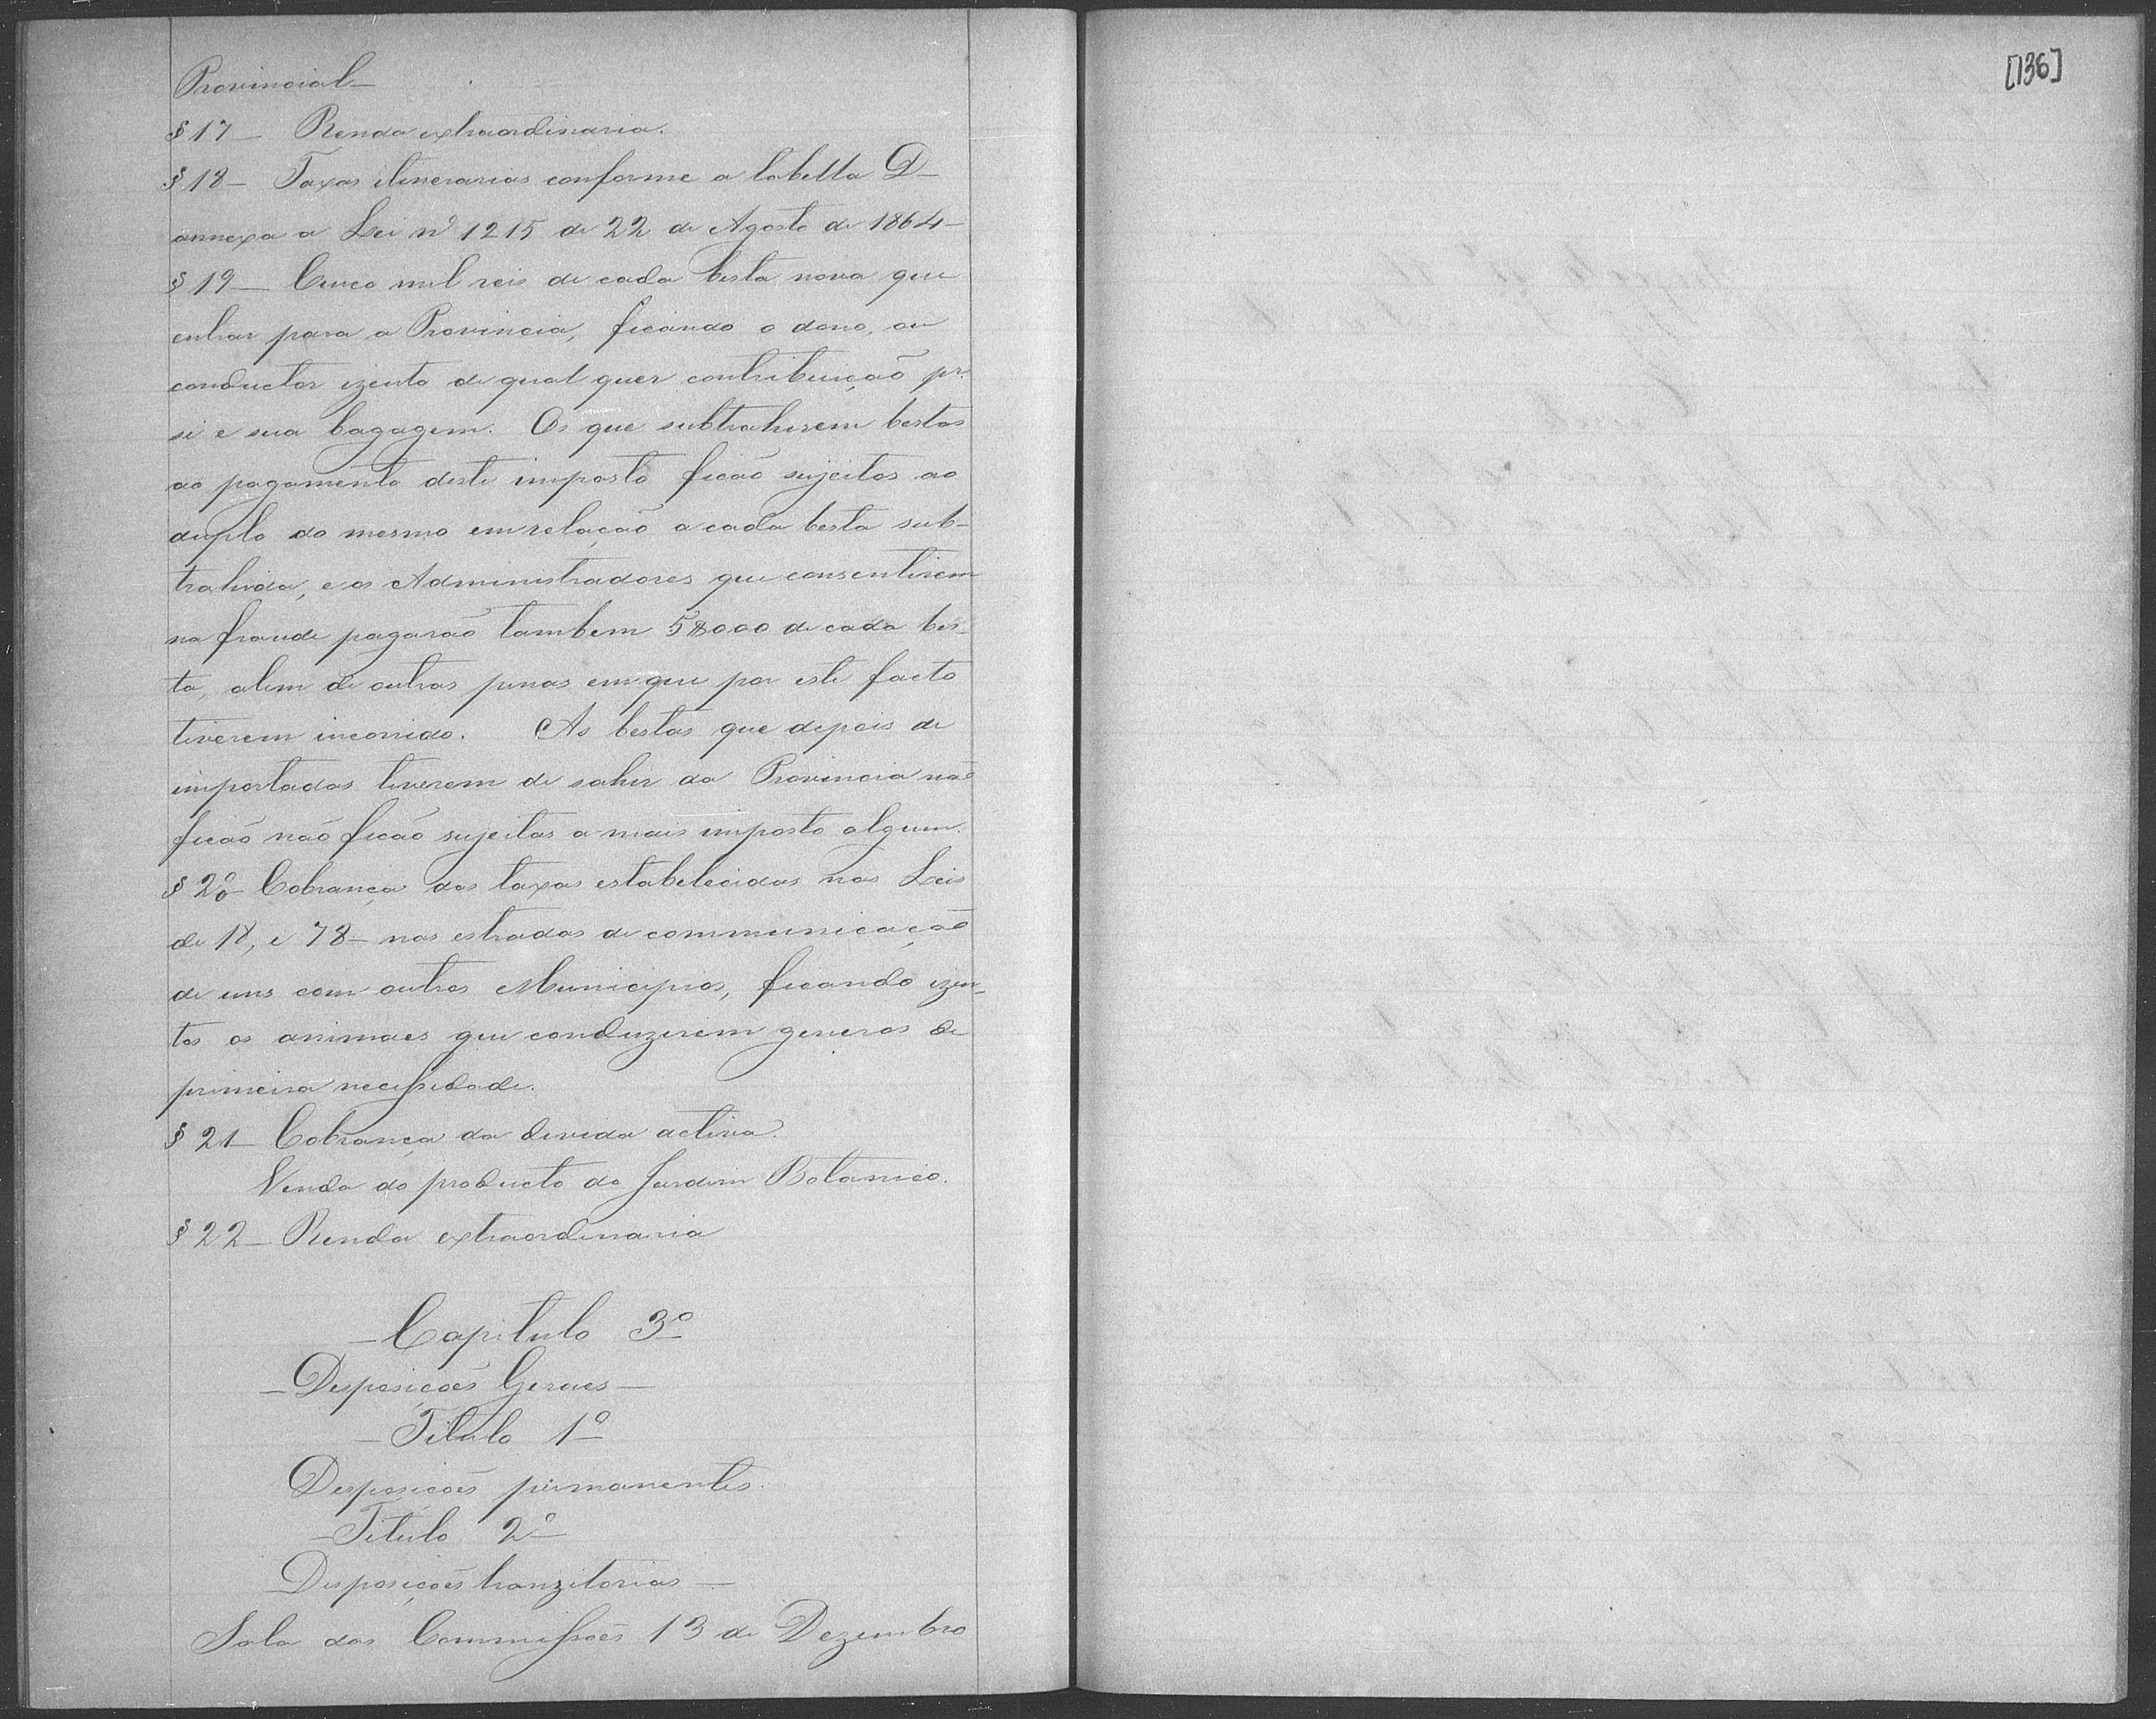 Provincial—
§ 17— Renda extraordinaria.
§ 18— Taxas itinerarias conforme a tabella D—
annexa a Lei nº 1215 de 22 de Agosto de 1864—
§ 19— Cinco mil reis de cada besta nova que
entrar para a Provincia, ficando o dono, ou
conductor izento de qual quer contribuição pr.
si e sua bagagem. Os que subtrahirem bestas
ao pagamento deste imposto ficão sujeitos ao
duplo do mesmo em relação a cada besta sub-
trahida, e os Administradores que consentirem
na fraude pagarão tambem 5$000 de cada bes-
ta, alem de outras penas em que por este facto
tiverem incorrido. As bestas que depois de
importadas tiverem de sahir da Provincia não
ficão não ficão sujeitas a mais imposto algum.
§ 20— Cobrança das taxas estabelecidas nas Leis
de 18, e 78— nas estradas de communicação
de uns com outros Municipios, ficando izen-
tos os animaes que conduzirem generos de
primeira necessidade.
§ 21— Cobrança da divida activa.
Venda do producto do Jardim Botanico.
§ 22— Renda extraordinaria
— Capitulo 3º
— Desposições Geraes—
— Titulo 1º
Desposições permanentes.
— Titulo 2º
Disposições tranzitorias—
Sala das Commissões 13 de Dezembro
[136]